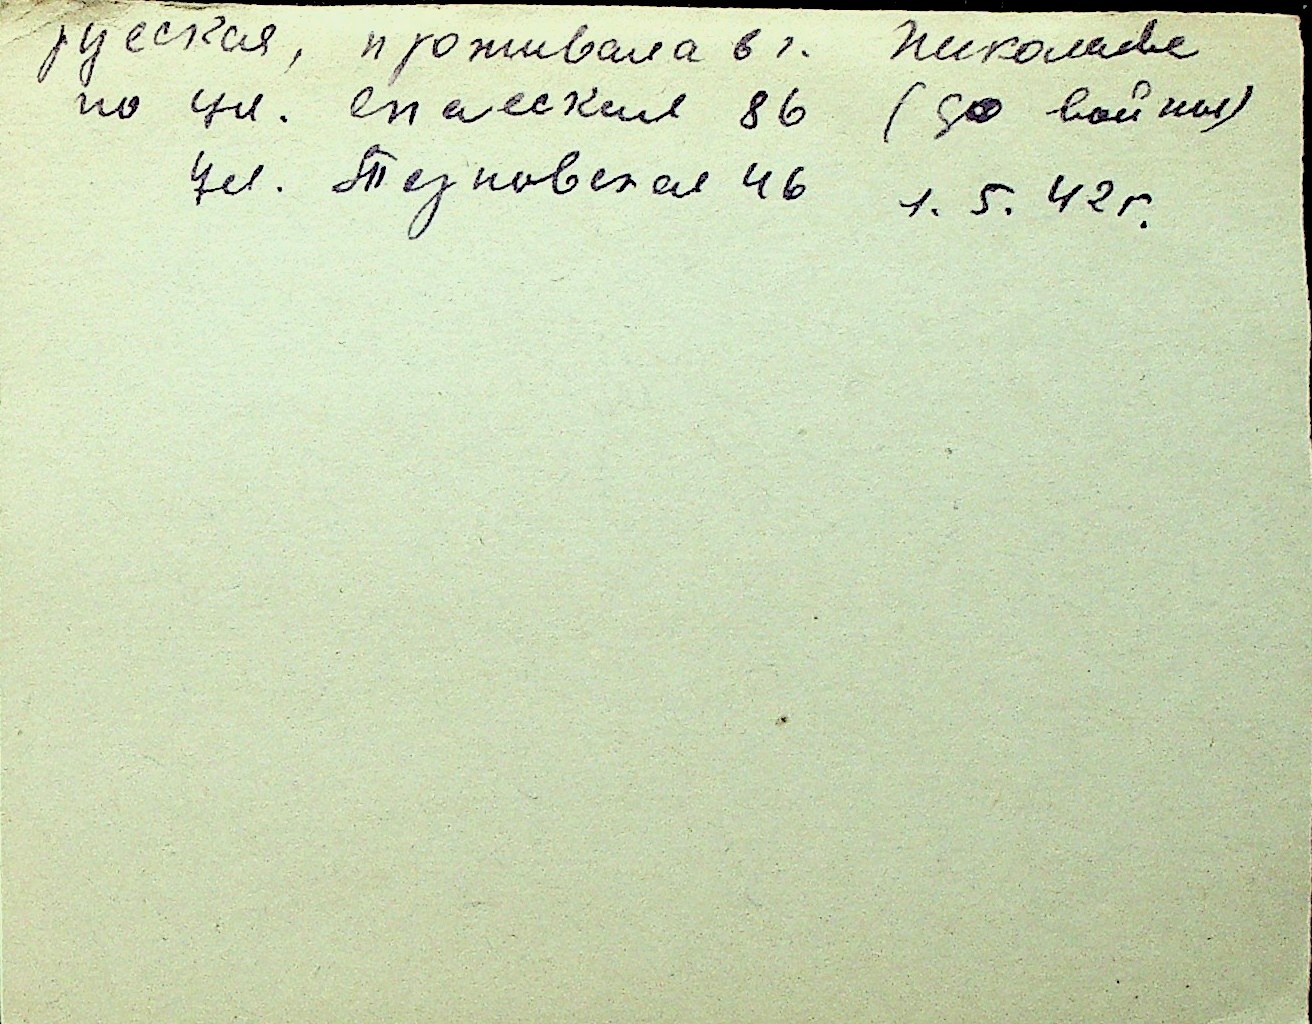 русская, проживала в г. Николаеве
по ул. Спасская 86 (до войны)
ул. 46 1. 5. 42 г.